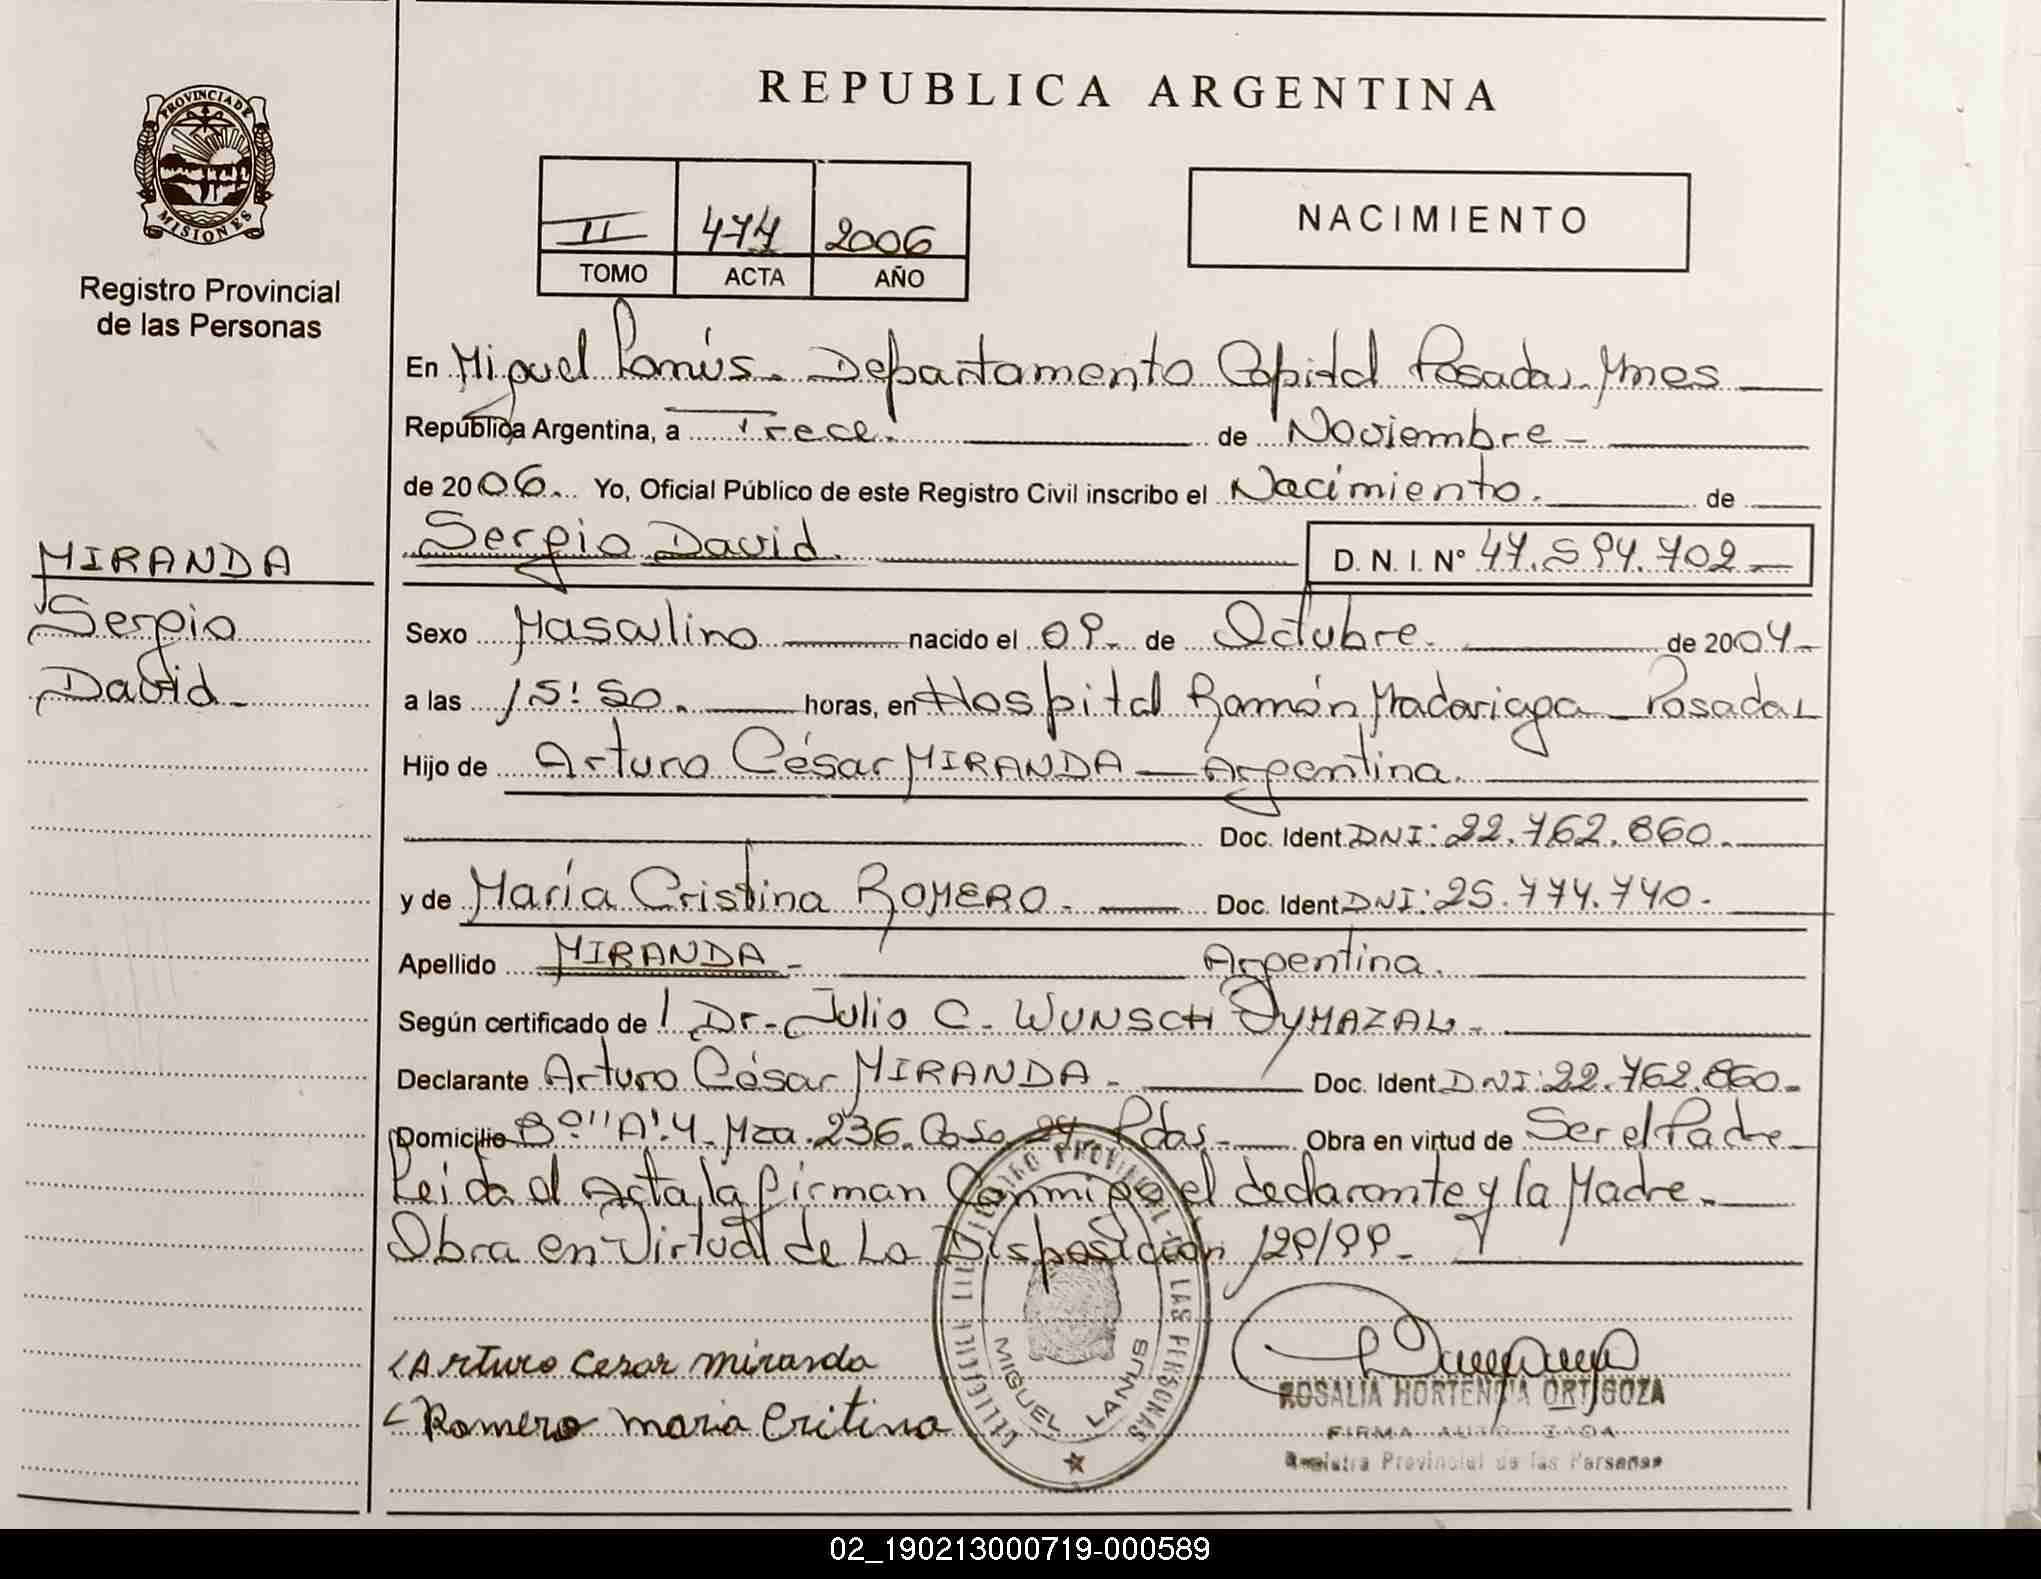 PROVINCIA DE
MISIONES
Registro Provincial
de las Personas
MIRANDA
Sergio
David
REPUBLICA ARGENTINA
II 474 2006
TOMO ACTA AÑO
NACIMIENTO
En Miguel Lanús. Departamento Capital Posadas. Mnes
República Argentina, a Trece. de Noviembre
de 2006. Yo, Oficial Público de este Registro Civil inscribo el Nacimiento. de
Sergio David. D. N. I. Nº 47.594.702
Sexo Masculino nacido el 09 de Octubre. de 2004
a las 15:50. horas, en Hospital Ramón Madariaga Posadas
Hijo de Arturo César MIRANDA Argentina.
Doc. Ident. DNI: 22.762.860.
y de María Cristina ROMERO. Doc. Ident. DNI: 25.774.740.
Apellido MIRANDA Argentina.
Según certificado de l Dr. Julio C. WUNSCH DYMAZAL.
Declarante Arturo César MIRANDA Doc. Ident. DNI: 22.762.860.
Domicilio Bº "A".4. Mza. 236. Casa 24 Pdas. Obra en virtud de Ser el Padre
Leida el Acta, la firman Conmigo el declarante y la Madre.
Obra en Virtud de La Disposición 129/99.
Arturo Cesar miranda
Romero maria Critina
MIGUEL LANUS
ROSALIA HORTENCIA ORTIGOZA
FIRMA AUTORIZADA
Registro Provincial de las Personas
02_190213000719-000589